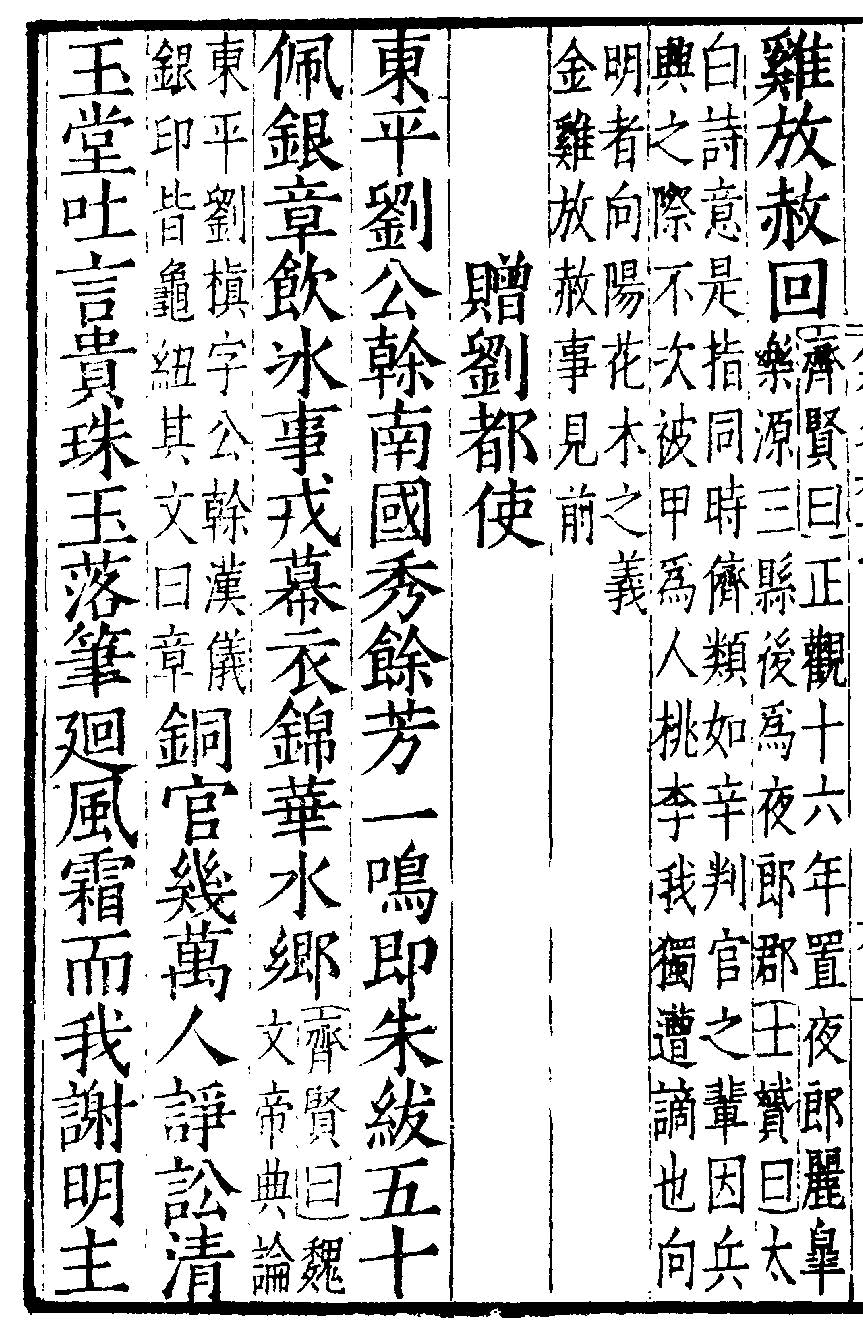 雞放赦回齊賢曰正觀十六年置夜郎麗臯
樂源三縣後爲夜郎郡士贇曰太
白詩意是指同時儕類如辛判官之輩因兵
興之際不次被甲爲人桃李我獨遭謫也向
明者向陽花木之義
金雞放赦事見前
贈劉都使
東平劉公幹南國秀餘芳一鳴即朱紱五十
佩銀章飲冰事戎幕衣錦華水鄉齊賢曰魏
文帝典論
東平劉楨字公幹漢儀
銀印皆龜紐其文曰章銅官幾萬人諍訟清
玉堂吐言貴珠玉落筆廻風霜而我謝明主